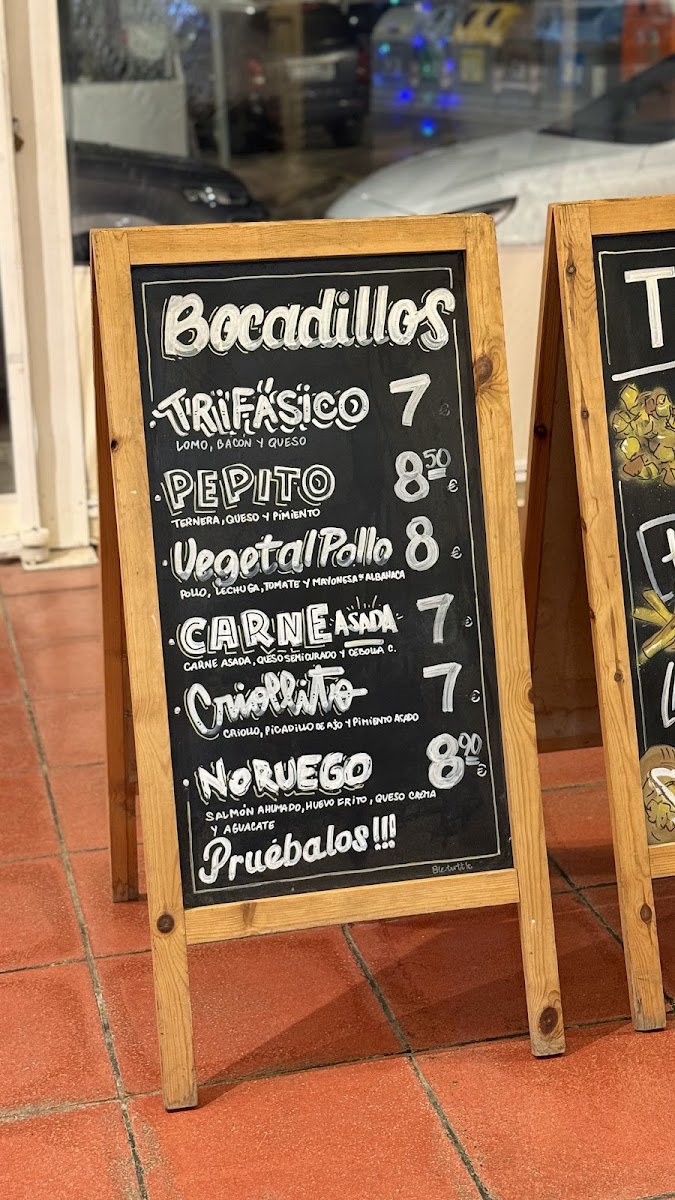 Bocadillos
TRIFÁSICO 7 €
LOMO, BACON Y QUESO
PEPITO 8,50 €
TERNERA, QUESO Y PIMIENTO
Vegetal Pollo 8 €
POLLO, LECHUGA, TOMATE Y MAYONESA DE ALBAHACA
CARNE ASADA 7 €
CARNE ASADA, QUESO SEMICURADO Y CEBOLLA C.
Criollito 7 €
CRIOLLO, PICADILLO DE AJO Y PIMIENTO ASADO
NORUEGO 8,90 €
SALMÓN AHUMADO, HUEVO FRITO, QUESO CREMA
Y AGUACATE
Pruébalos!!!
T